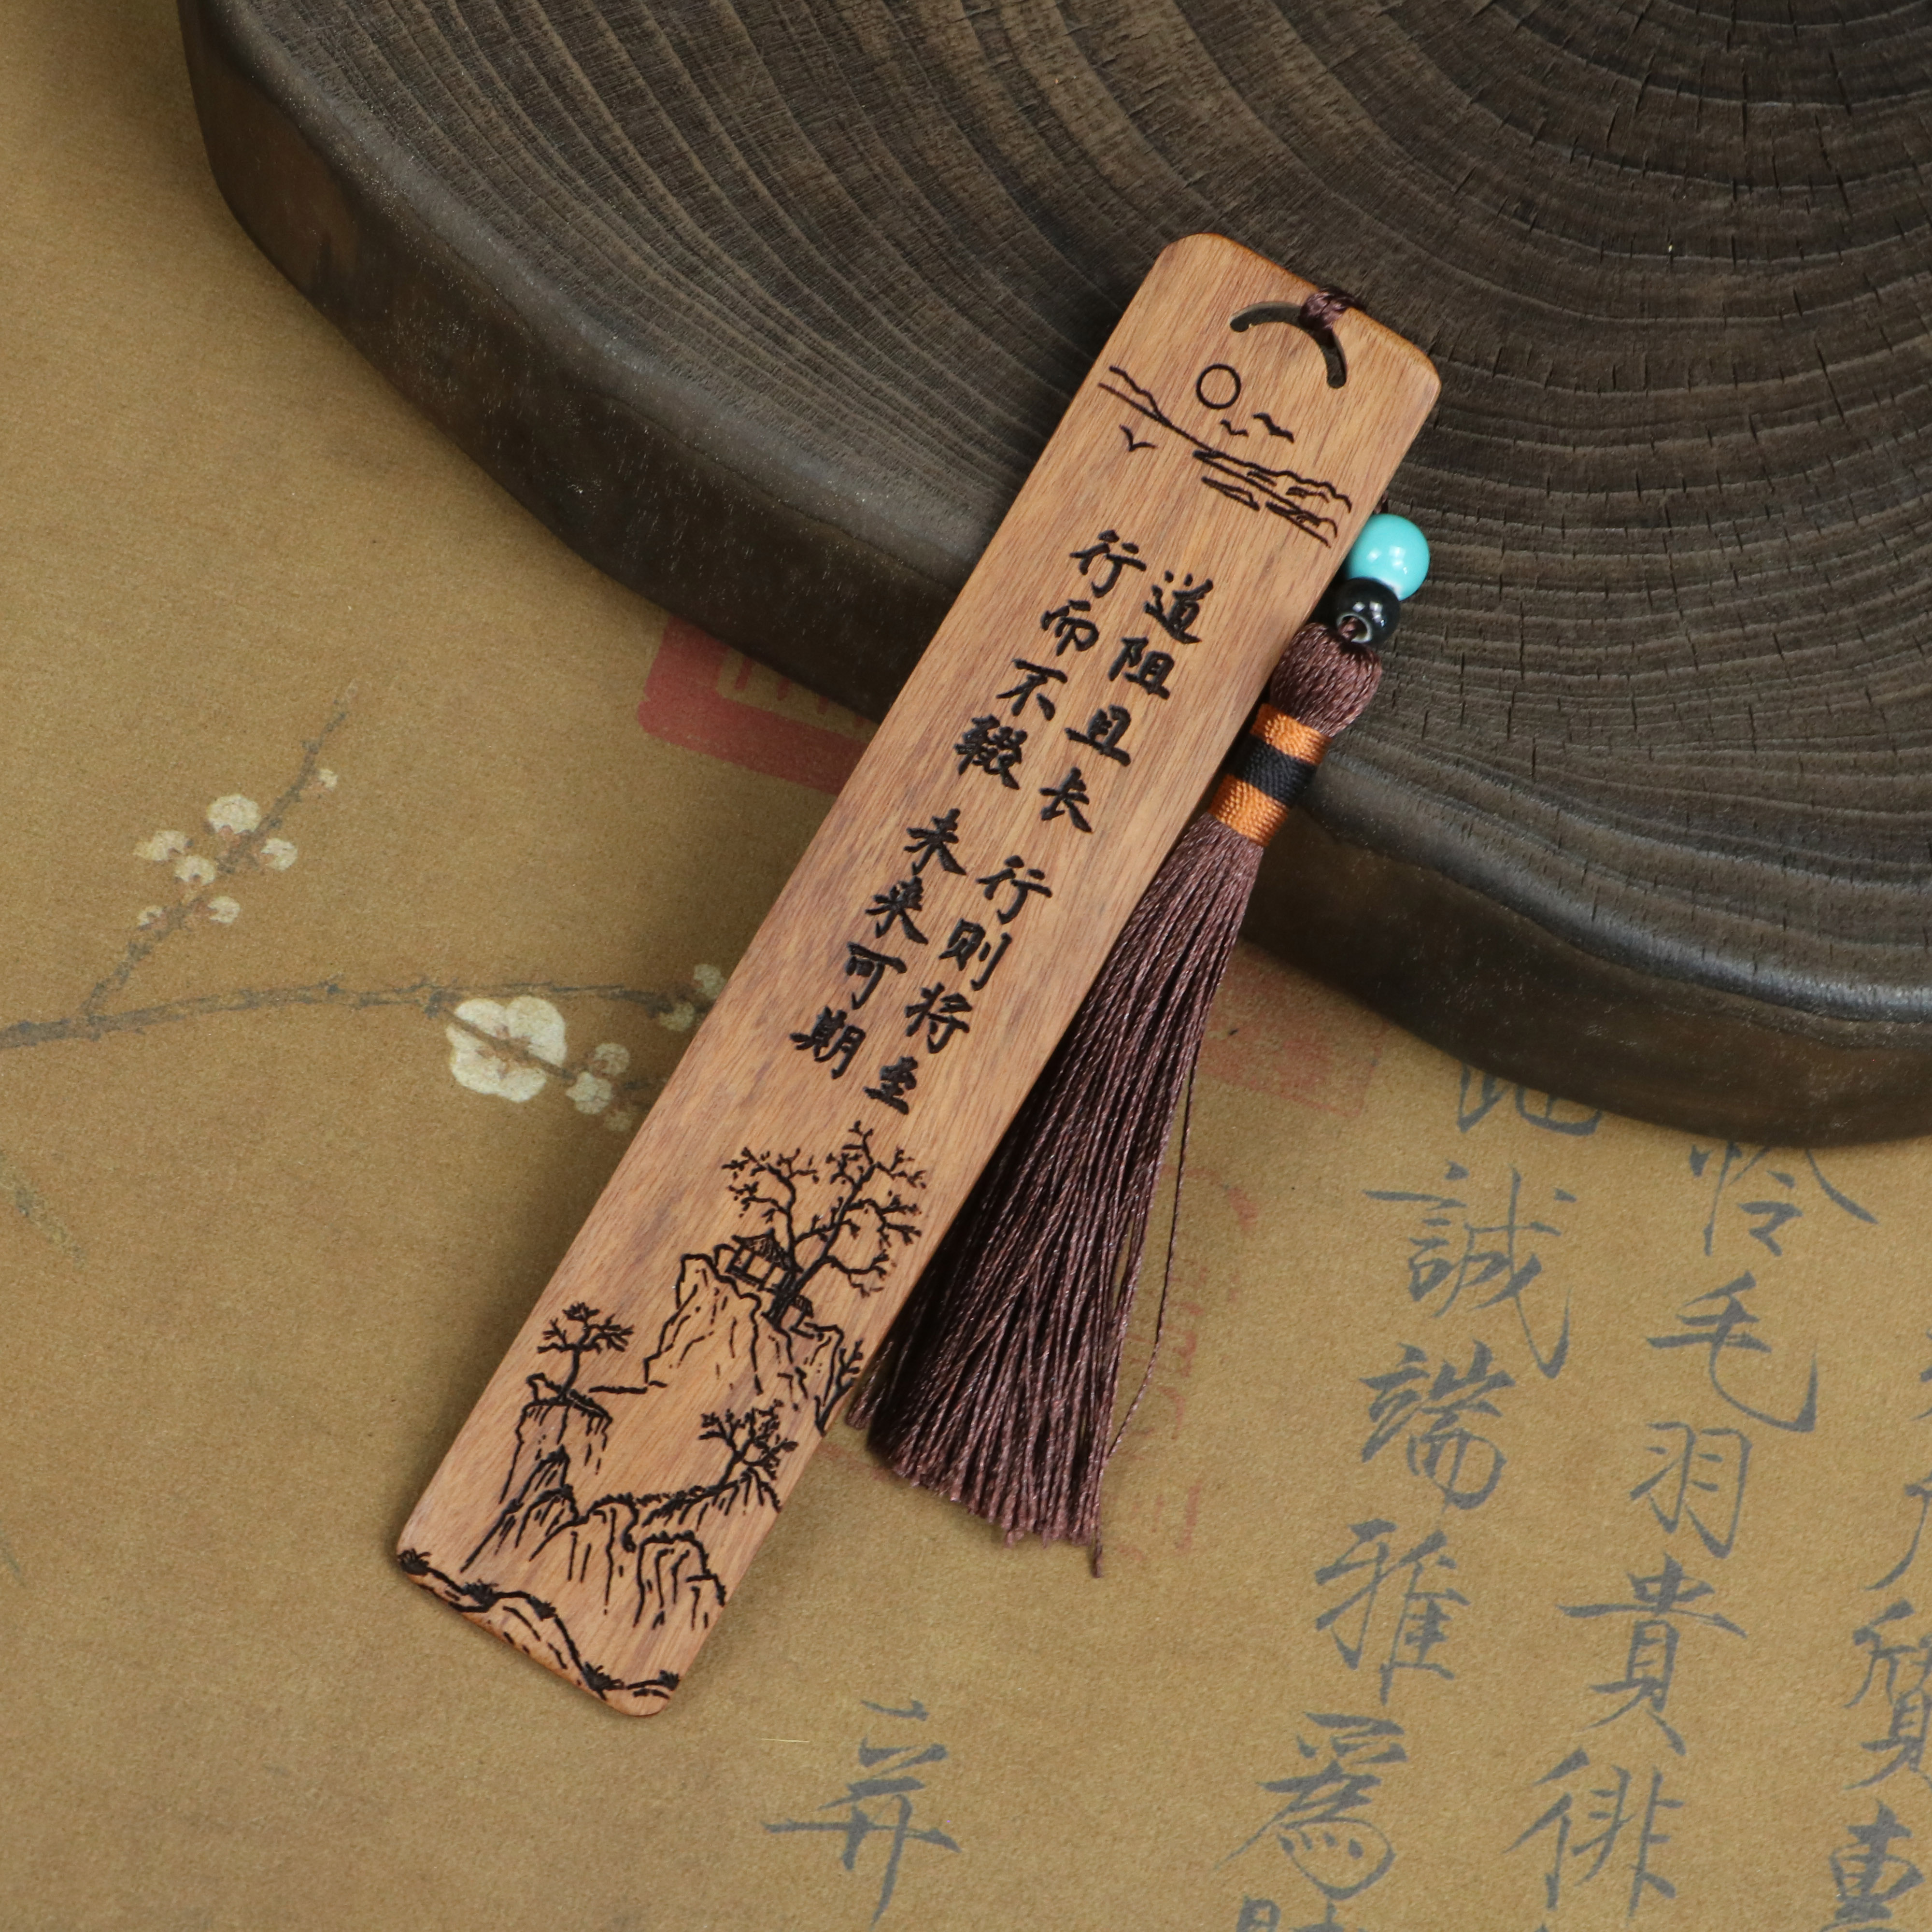 道阻且长 行则将至
行而不辍 未来可期
怜毛羽貴徘
誠端雅爲
并